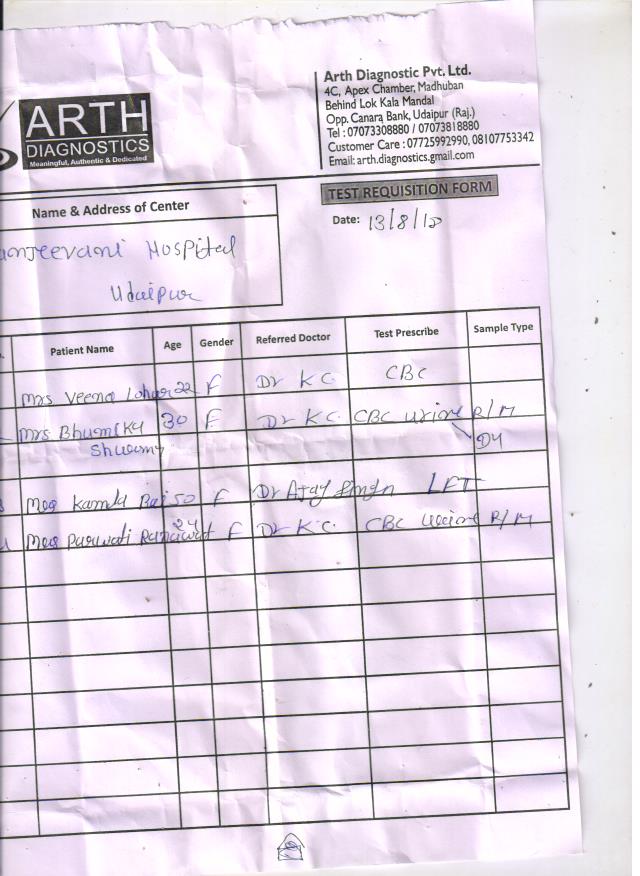 ARTH
DIAGNOSTICS
Meaningful, Authentic & Dedicated
Arth Diagnostic Pvt. Ltd.
4C, Apex Chamber, Madhuban
Behind Lok Kala Mandal
Opp. Canara Bank, Udaipur (Raj.)
Tel : 07073308880 / 07073818880
Customer Care : 07725992990, 08107753342
Email: arth.diagnostics.gmail.com
TEST REQUISITION FORM
Name & Address of Center
Date: 13/8/18
anjeevani Hospital
Udaipur
Patient Name Age Gender Referred Doctor Test Prescribe Sample Type
Mrs Veena Lohar 22 F Dr K C. CBC
Mrs Bhumika 30 F Dr K C. CBC Urine R/M
Kamla Bai 50 F Dr Ajay Singh LFT
Ranawat 24 F Dr K C. CBC Urine R/M